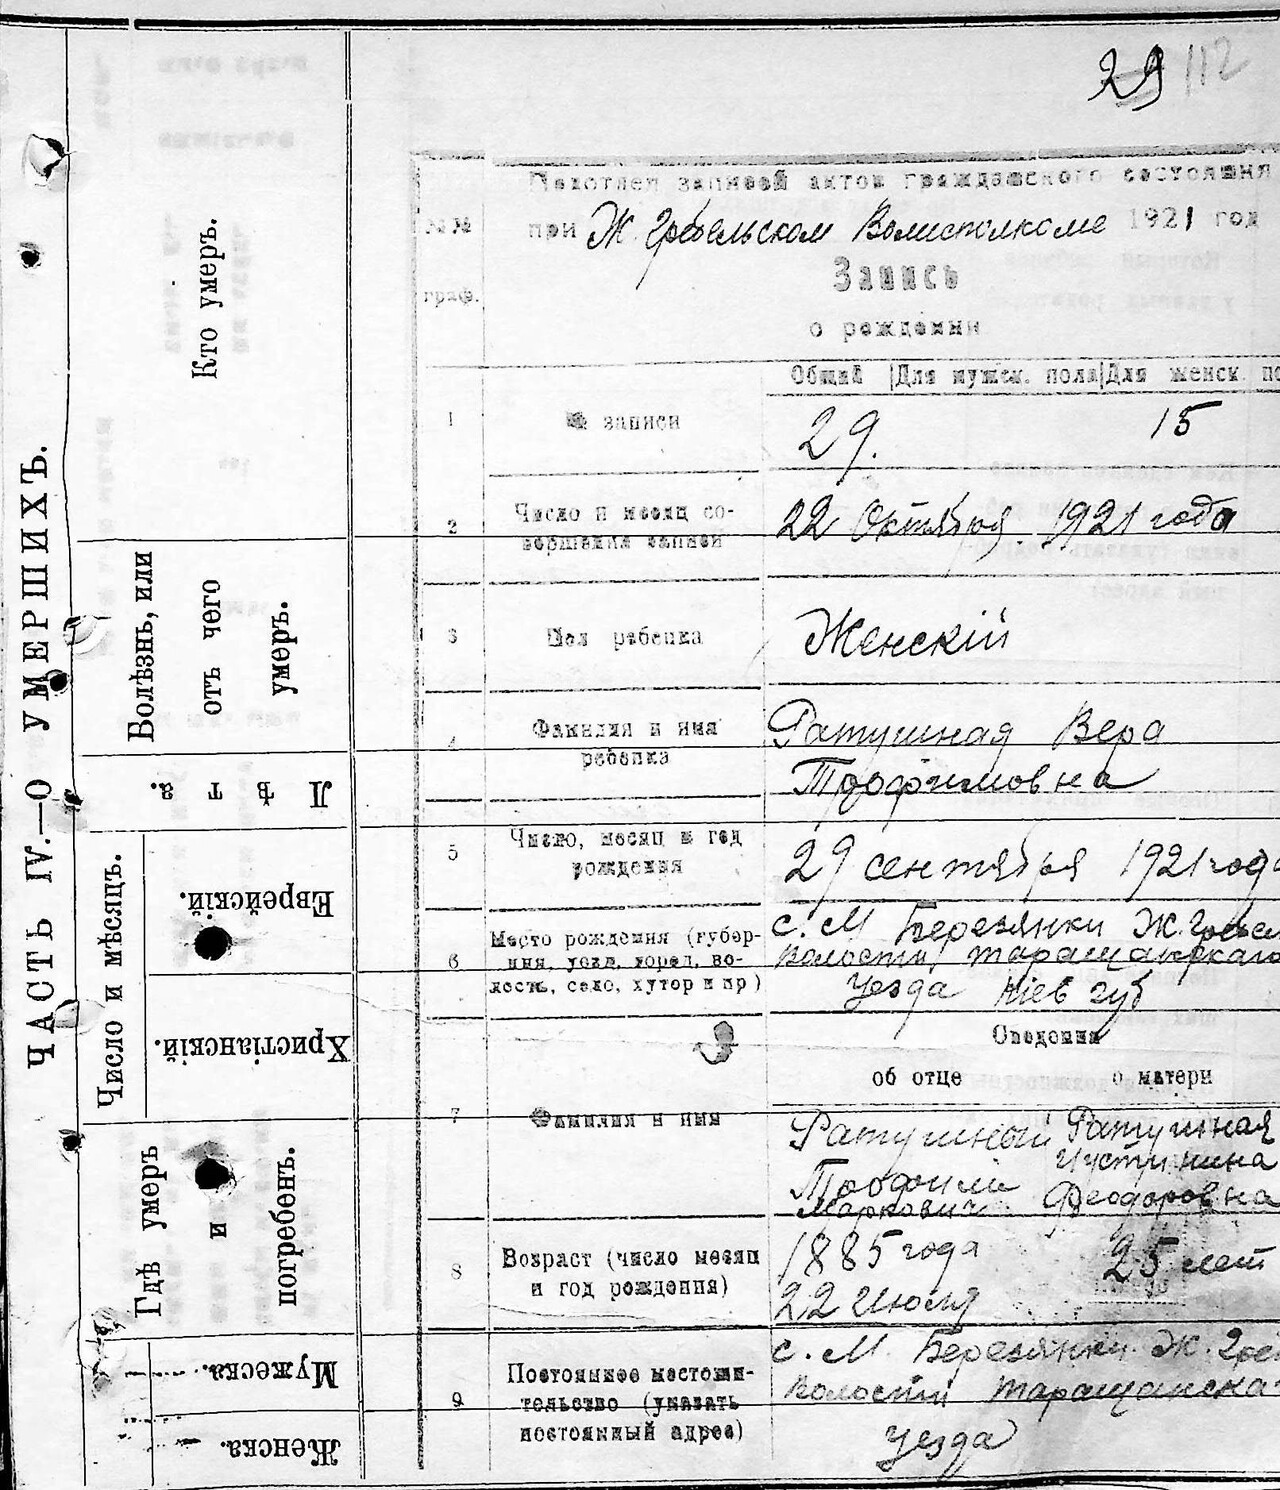 29 112
ЧАСТЬ IV.—О УМЕРШИХЪ.
Кто умеръ.
Болѣзнь, или
отъ чего
умеръ.
Лѣта.
Число и мѣсяцъ.
Еврейскій.
Христіанскій.
Гдѣ умеръ
и
погребенъ.
Мужеска.
Женска.
записей актов гражданского состояния
при Ж. Гребельском Волисполкоме 1921 год
№№
граф.
Запись
о рождении
Общий Для мужск. пола Для женск. по
1 № записи 29. 15
2 Число и месяц со-
вершения записи
22 Октября 1921 года
3 Пол ребенка Женскій
4 Фамилия и имя
ребенка
Ратушная Вера
Трофимовна
5 Число, месяц и год
рождения
29 сентября 1921 года
6 Место рождения (губер-
ния, уезд, город, во-
лость, село, хутор и пр)
с. М Березянки Ж. Гребел
Волости Таращанского
Уезда Киев губ
Сведения
об отце о матери
7 Фамилия и имя
Ратушный
Трофим
Маркович
Ратушная
Иустинина
Феодоровна
8 Возраст (число месяц
и год рождения)
1885 года
22 Июля
25 лет
9 Постоянное местожи-
тельство (указать
постоянный адрес)
с. М. Березянки Ж. Греб
Волости Таращанска
Уезда